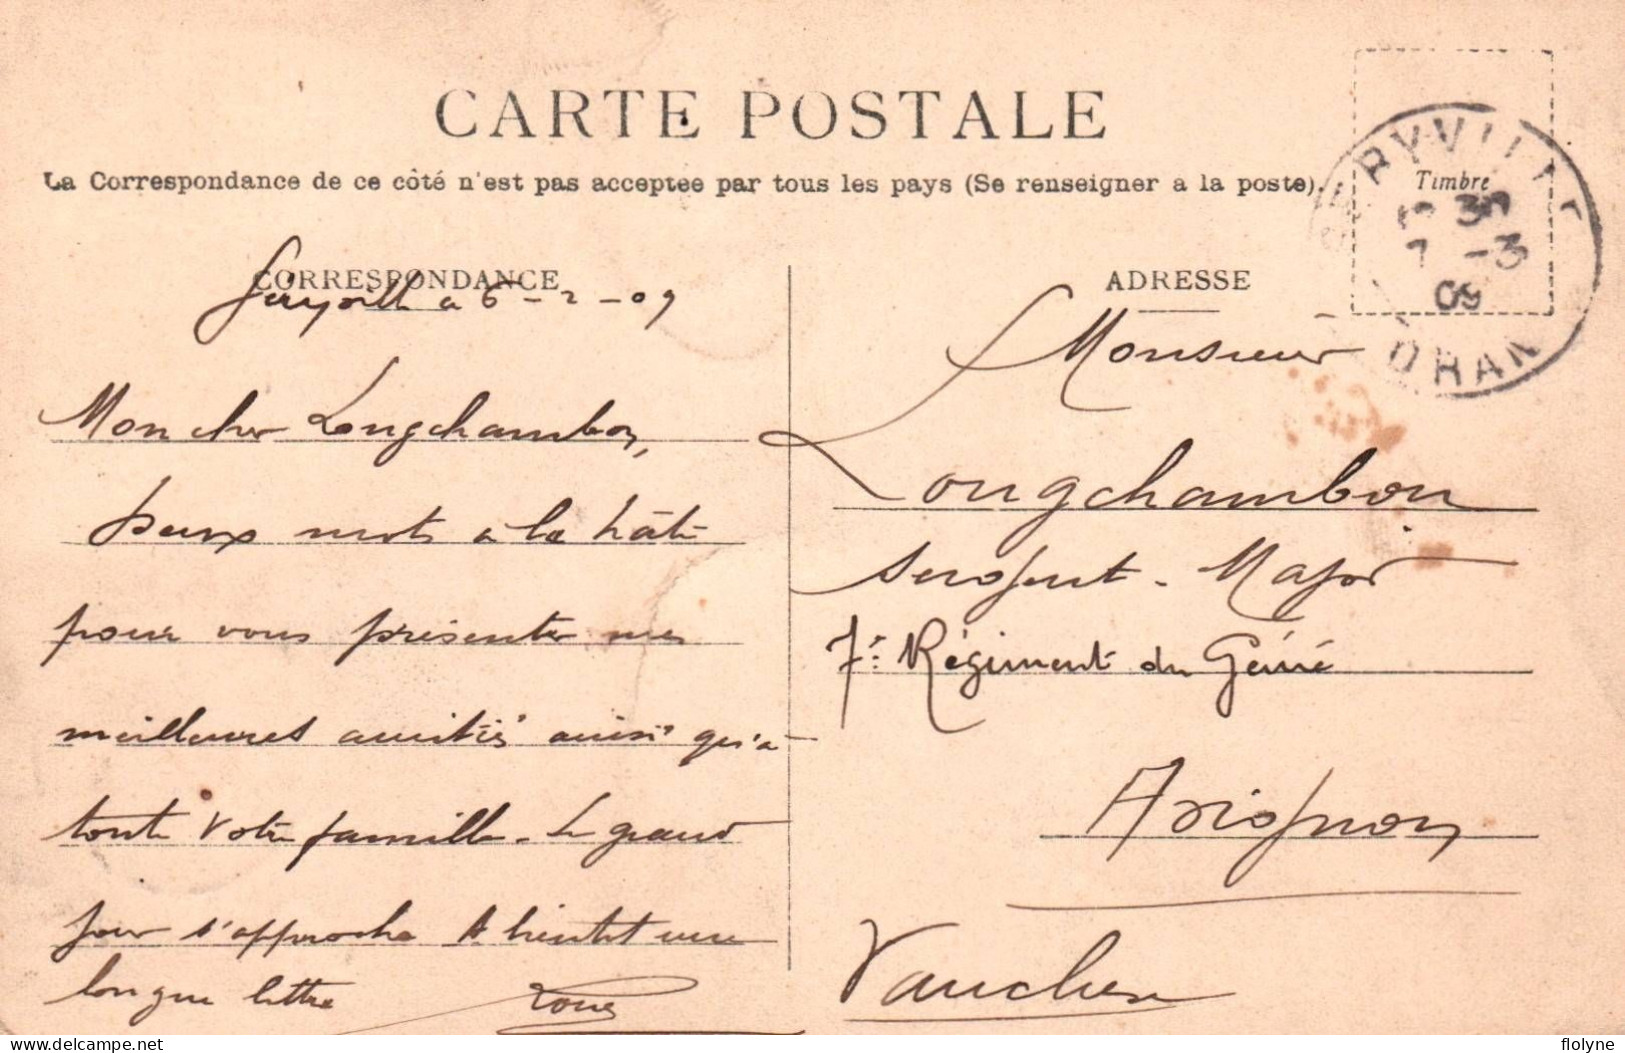 CARTE POSTALE
La Correspondance de ce côté n'est pas acceptee par tous les pays (Se renseigner a la poste).
Timbre
RYVILLE
30
7 -3
09
ORAN
CORRESPONDANCE
Géryville a 6-2-09
Mon cher Longchambon,
Deux mots à la hâte
pour vous présenter mes
meilleures amitiés ainsi qu'à
toute votre famille. Le grand
jour s'approche A bientôt une
longue lettre
ADRESSE
Monsieur
Longchambon
Sergent-Major
7e Régiment du Génie
Avignon
Vaucluse
flolyne
delcampe.net